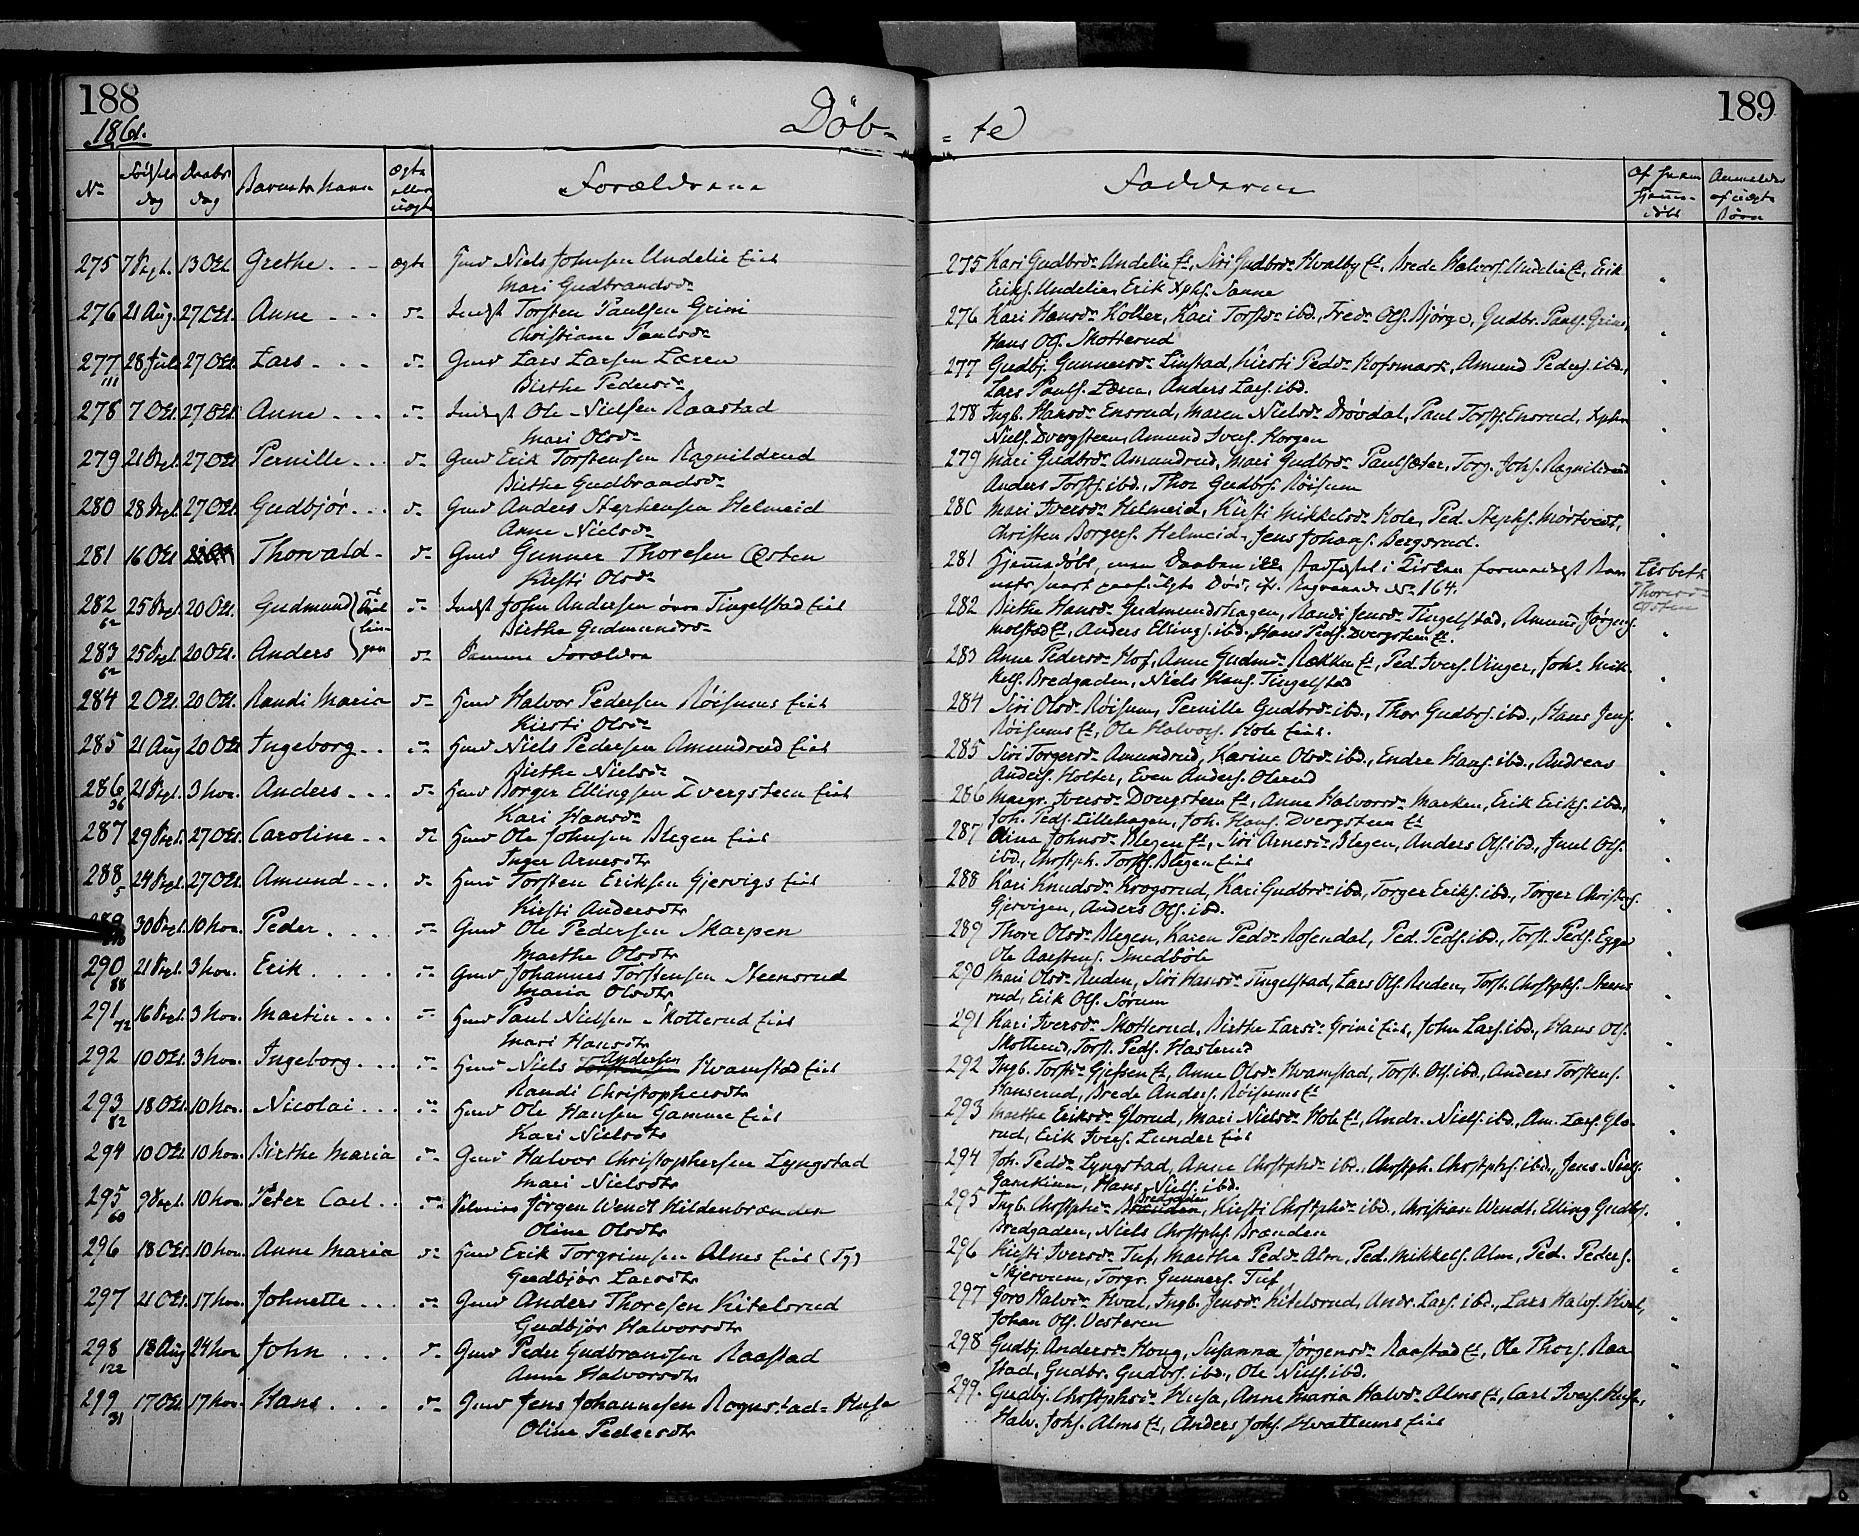 188
1861.
Döb-
No
Fødsels dag
Daabs dag
Barnets Navn
Ægte eller uægte
Forældrene
275 7 Sept. 13 Oct. Grethe ægte Gmd Niels Johnsen Undelie Eiet
Mari Gudbrandsdr
276 21 Aug. 27 Oct. Anne do Indst Torsten Paulsen Grini
Christiane Paulsdr
277 28 Juli 27 Oct. Lars do Gmd Lars Larsen Læren
111 Birthe Pedersdr
278 7 Oct. 27 Oct. Anne do Indst Ole Nielsen Raastad
Mari Olsdr
279 21 Sept. 27 Oct. Pernille do Gmd Erik Torstensen Ragnildrud
Birthe Gudbrandsdr
280 28 Sept. 27 Oct. Gudbjør do Gmd Anders Stephensen Helmeid
Anne Nielsdr
281 16 Oct. Thorvald do Gmd Gunner Thoresen Østen
Kirsti Olsdr
282 25 Sept. 20 Oct. Gudmund do Indst John Andersen øvre Tingelstad Eiet
62 Birthe Gudmundsdr
283 25 Sept. 20 Oct. Anders do Samme Forældre
62
284 2 Oct. 20 Oct. Randi Maria do Hmd Halvor Pedersen Röisums Eiet
Kirsti Olsdr
285 21 Aug 20 Oct Ingeborg do Hmd Niels Pedersen Amundrud Eiet
Birthe Nielsdr
286 21 Sept. 3 Nov. Anders do Hmd Borger Ellingsen Dvergsteen Eiet
36 Kari Hansdr
287 29 Sept. 27 Oct. Caroline do Hmd Ole Johnsen Blegen Eiet
Inger Arnesdtr
288 24 Sept. 27 Oct. Amund do Hmd Torsten Eriksen Gjervigs Eiet
5 Kirsti Andersdtr
289 30 Sept. 10 Nov. Peder do Gmd Ole Pedersen Skarpen
Marthe Olsdtr
290 21 Sept. 3 Nov. Erik do Gmd Johannes Torstensen Steensrud
88 Maria Olsdtr
291 16 Sept. 3 Nov. Martin do Hmd Paul Nielsen Skotterud Eiet
72 Mari Hansdtr
292 10 Oct. 3 Nov. Ingeborg do Hmd Niels Torstensen Andersen Hvamstad Eiet
Randi Christophersdtr
293 18 Oct. 10 Nov. Nicolai do Hmd Ole Hansen Gamme Eiet
82 Kari Nielsdtr
294 10 Oct. 10 Nov. Birthe Maria do Gmd Halvor Christophersen Lyngstad
Mari Nielsdtr
295 9 Sept. 10 Nov. Peter Carl do Jørgen Wendt Kildenbrænden
60 Oline Olsdtr
296 18 Oct. 10 Nov. Anne Maria do Hmd Erik Torgrimsen Alms Eiet (Tj)
Gudbjør Larsdtr
297 21 Oct. 17 Nov. Johnette do Gmd Anders Thoresen Kitelsrud
Gudbjør Halvorsdtr
298 18 Aug 24 Nov John do Gmd Peder Gudbrandsen Raastad
122 Anne Halvorsdtr
299 17 Oct 17 Nov. Hans do Gmd Jens Johannesen Rognstad-Husa
31 Oline Pedersdtr
189
-te
Fadderne
Af hvem hjemmedøbt
Anmeldes af uægte Børn
275 Kari Gudbrdr Undelie Et, Siri Gudbrdr Hvalby Et, Brede Halvors. Undelie Et, Erik
Eriks. Undelie, Erik Xphs. Sanne
276 Kari Hansdr Koller, Kari Torstdr ibd, Fredr Ols. Bjørge, Gudbr. Pauls. Grini,
Hans Ols. Skotterud
277 Gudbj. Gunnersdr Linstad, Kirsti Peddr Hofsmark, Amund Peders. ibd.,
Lars Pauls. Læren, Anders Lars. ibd.
278 Ingb. Hansdr Ensrud, Maren Nielsdr Drövdal, Paul Torsts. Ensrud, Xpher
Niels. Dvergsteen, Amund Ivers. Korgen
279 Mari Gudbrdr Amundrud, Mari Gudbrdr Paulsæter, Torg. Johs. Ragnildrud
Anders Torsts. ibd., Thor Gudbrs. Röisum
280 Mari Iversdr Helmeid, Kirsti Mikkelsdr Hole, Ped. Stephs. Mörtvedt,
Christen Borgers. Helmeid, Jens Johans. Bergsrud.
281 Hjemmedöbt, men Daaben ikke stadfæstet i Kirken formedelst Barnets snart paafulgte Död, cfr. Begravede No 164.
Lisbeth Thoresdr Østen
282 Birthe Hansdr Gudmundshagen, Randi Jensdr Tingelstad, Amund Jørgens.
Molstad Et, Anders Ellings. ibd., Hans Peds. Dvergsteen Et.
283 Anne Pedersdr Hof, Anne Gudmdr Rækken Et, Ped. Ivers. Vinger, Johs Mikkels. Bredgaden, Niels Hans. Tingelstad
284 Siri Olsdr Röisum, Pernille Gudbrdr ibd., Thor Gudbrs. ibd., Hans Jens.
Röisums Et, Ole Halvors. Hole Eiet.
285 Siri Torgersdr Amundrud, Karine Olsdr ibd., Endre Haags. ibd., Andreas
Anders. Holter, Even Anders. Olerud
286 Margr. Iversdr Dvergsteen Et, Anne Halvorsdr Marken, Erik Eriks. ibd.,
Joh. Peds. Lillehagen, Joh. Hans. Dvergsteen Et
287 Olina Johnsdr Blegen Et, Siri Arnesdr Blegen, Anders Ols. ibd., Juul Ols.
ibd., Chrstph. Torsts. Blegen Eiet
288 Kari Knudsdr Krogsrud, Kari Gudbrdr ibd., Torger Eriks. ibd., Torger Christophs.
Gjervigen, Anders Ols. ibd.
289 Thore Olsdr Blegen, Karen Peddr Rosendal, Ped. Peds. ibd., Torst. Peds. Egge
Ole Aarstens. Smedbøle
290 Mari Olsdr Ruden, Siri Hansdr Tingelstad, Lars Ols. Ruden, Torst. Chrstphs. Steensrud, Erik Ols. Sörum
291 Kari Iversdr Skotterud, Birthe Larsdr Grini Eiet, John Lars. ibd., Hans Ols.
Skotterud, Torst. Peds. Haslerud
292 Ingb. Torstdr Gjefsen Et, Anne Olsdr Hvamstad, Torst. Ols. ibd., Anders Torstens.
Hanserud, Brede Anders. Röisums Et
293 Marthe Eriksdr Glorud, Mari Nielsdr Hole Et, Andr. Niels. ibd., Am. Lars. Glorud, Erik Ivers. Lunder Eiet
294 Joh. Peddr Lyngstad, Anne Chrstphdr ibd., Chrstph. Chrstphs. ibd., Jens Niels.
Gamkinn, Hans Niels. ibd.
295 Ingb. Chrstphdr Brænden Bredgaden, Kirsti Chrstphdr ibd., Christian Wendt, Elling Gudbrs.
Bredgaden, Niels Chrstphs. Brænden
296 Kirsti Iversdr Tuf, Marthe Peddr Alm, Ped. Mikkels. Alm, Ped. Peders.
Skjervum, Torgr. Gunners. Tuf
297 Goro Halvdr Hval, Ingb. Jensdr Kitelsrud, Andr. Lars. ibd., Lars Halvs. Hval,
Johan Ols. Vesteren
298 Gudbj. Andersdr Houg, Susanna Jørgensdr Raastad Et, Ole Thors. Raastad, Gudbr. Gudbrs. ibd., Ole Niels. ibd.
299. Gudbj. Chrstphdr Husa, Anne Maria Halvdr Alms Et, Carl Ivers. Husa,
Halv. Johs. Alms Et, Anders Johs. Hvattums Eiet